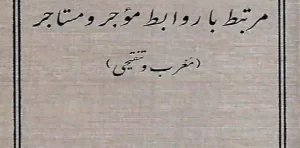 مرتبط با روابط مؤجر و مستاجر
(مغرب و تنقیحی)